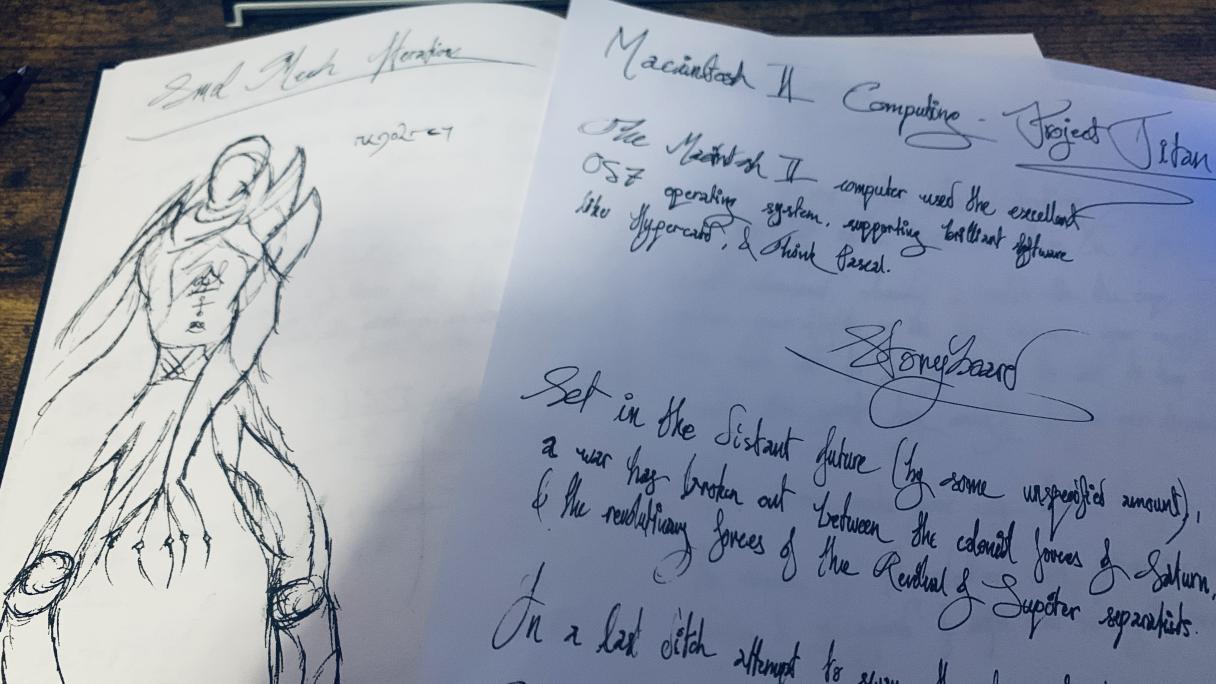 2nd Mech Iteration
Macintosh II Computing - Project Titan
The Macintosh II computer used the excellent
OS7 operating system, supporting brilliant software
like Hypercard, & Think Pascal.
Storyboard
Set in the distant future (by some unspecified amount),
a war has broken out between the colonist forces of Saturn,
& the revolutionary forces of the Revival of Jupiter separatists.
In a last ditch attempt to